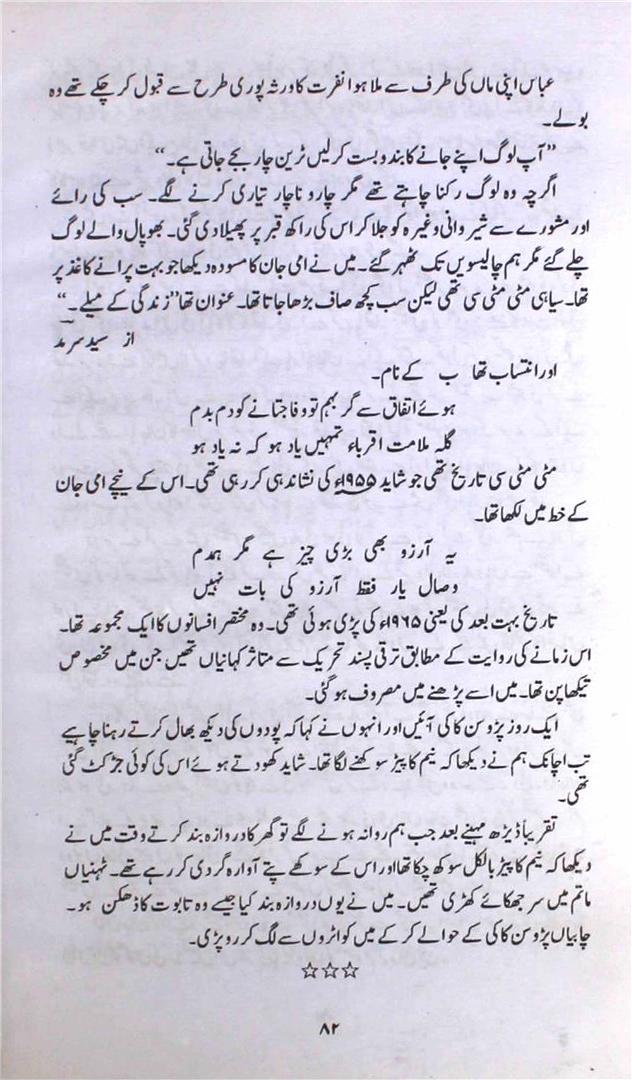 عباس اپنی ماں کی طرف سے ملا ہوا نفرت کا ورثہ پوری طرح سے قبول کر چکے تھے وہ
بولے۔
”آپ لوگ اپنے جانے کا بندوبست کرلیں ٹرین چار بجے جاتی ہے۔“
اگرچہ وہ لوگ رکنا چاہتے تھے مگر چار و ناچار تیاری کرنے لگے۔ سب کی رائے
اور مشورے سے شیروانی وغیرہ کو جلا کر اس کی راکھ قبر پر پھیلا دی گئی۔ بھوپال والے لوگ
چلے گئے مگر ہم چالیسویں تک ٹھہر گئے۔ میں نے امی جان کا مسودہ دیکھا جو بہت پرانے کاغذ پر
تھا۔ سیاہی مٹی مٹی سی تھی لیکن سب کچھ صاف پڑھا جاتا تھا۔ عنوان تھا ”زندگی کے میلے۔“
از سید سرمد
اور انتساب تھا ب کے نام۔
ہوئے اتفاق سے گر بہم تو وفا جتانے کو دم بدم
گلہ ملامت اقرباء تمہیں یاد ہو کہ نہ یاد ہو
مٹی مٹی سی تاریخ تھی جو شاید ۱۹۵۵ء کی نشاندہی کر رہی تھی۔ اس کے نیچے امی جان
کے خط میں لکھا تھا۔
یہ آرزو بھی بڑی چیز ہے مگر ہمدم
وصال یار فقط آرزو کی بات نہیں
تاریخ بہت بعد کی یعنی ۱۹۶۵ء کی پڑی ہوئی تھی۔ وہ مختصر افسانوں کا ایک مجموعہ تھا۔
اس زمانے کی روایت کے مطابق ترقی پسند تحریک سے متاثر کہانیاں تھیں جن میں مخصوص
تیکھا پن تھا۔ میں اسے پڑھنے میں مصروف ہو گئی۔
ایک روز پڑوسن کاکی آئیں اور انہوں نے کہا کہ پودوں کی دیکھ بھال کرتے رہنا چاہیے
تب اچانک ہم نے دیکھا کہ نیم کا پیڑ سوکھنے لگا تھا۔ شاید کھودتے ہوئے اس کی کوئی جڑ کٹ گئی
تھی۔
تقریباً ڈیڑھ مہینے بعد جب ہم روانہ ہونے لگے تو گھر کا دروازہ بند کرتے وقت میں نے
دیکھا کہ نیم کا پیڑ بالکل سوکھ چکا تھا اور اس کے سوکھے پتے آوارہ گردی کر رہے تھے۔ ٹہنیاں
ماتم میں سر جھکائے کھڑی تھیں۔ میں نے یوں دروازہ بند کیا جیسے وہ تابوت کا ڈھکن ہو۔
چابیاں پڑوسن کاکی کے حوالے کر کے میں کواڑوں سے لگ کر رو پڑی۔
☆☆☆
۸۲